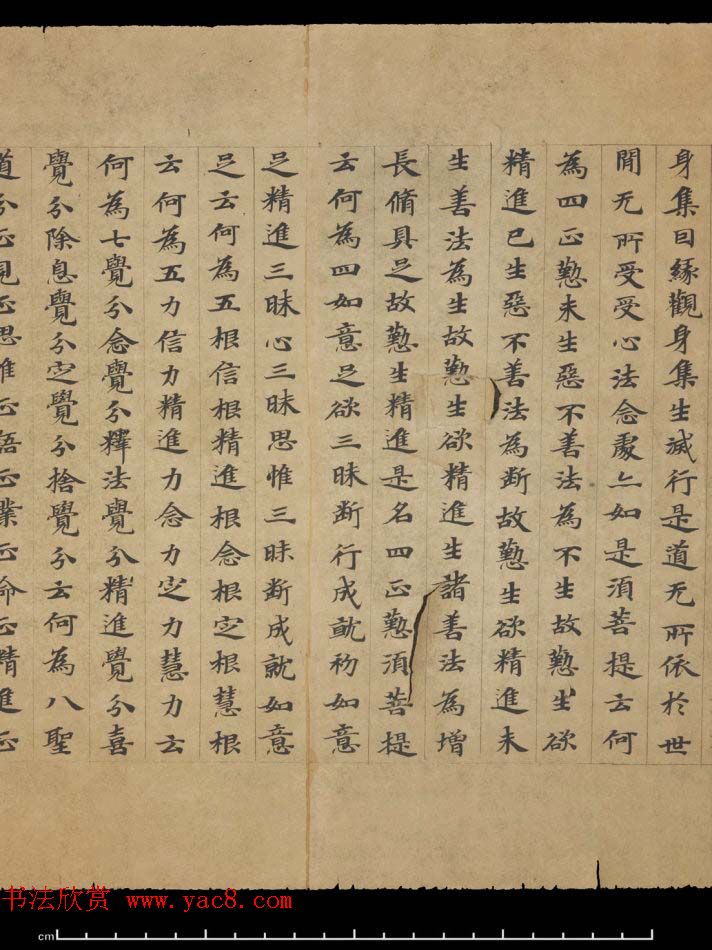 身集囙緣觀身集生滅行是道无所依於世
閒无所受受心法念處亦如是湏菩提云何
為四正懃未生惡不善法為不生故懃生欲
精進已生惡不善法為断故懃生欲精進未
生善法為生故懃生欲精進生諸善法為增
長脩具足故懃生精進是名四正懃湏菩提
云何為四如意足欲三昧断行成就初如意
足精進三昧心三昧思惟三昧断成就如意
足云何為五根信根精進根念根定根慧根
云何為五力信力精進力念力定力慧力云
何為七覺分念覺分釋法覺分精進覺分喜
覺分除息覺分定覺分捨覺分云何為八聖
道分正見正思惟正語正業正命正精進正
书法欣赏 www.yac8.com
cm